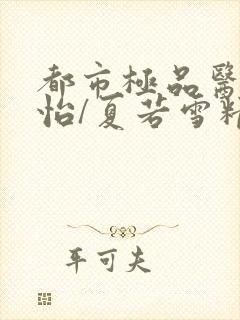 都市極品醫
怡/夏若雪精
平可夫